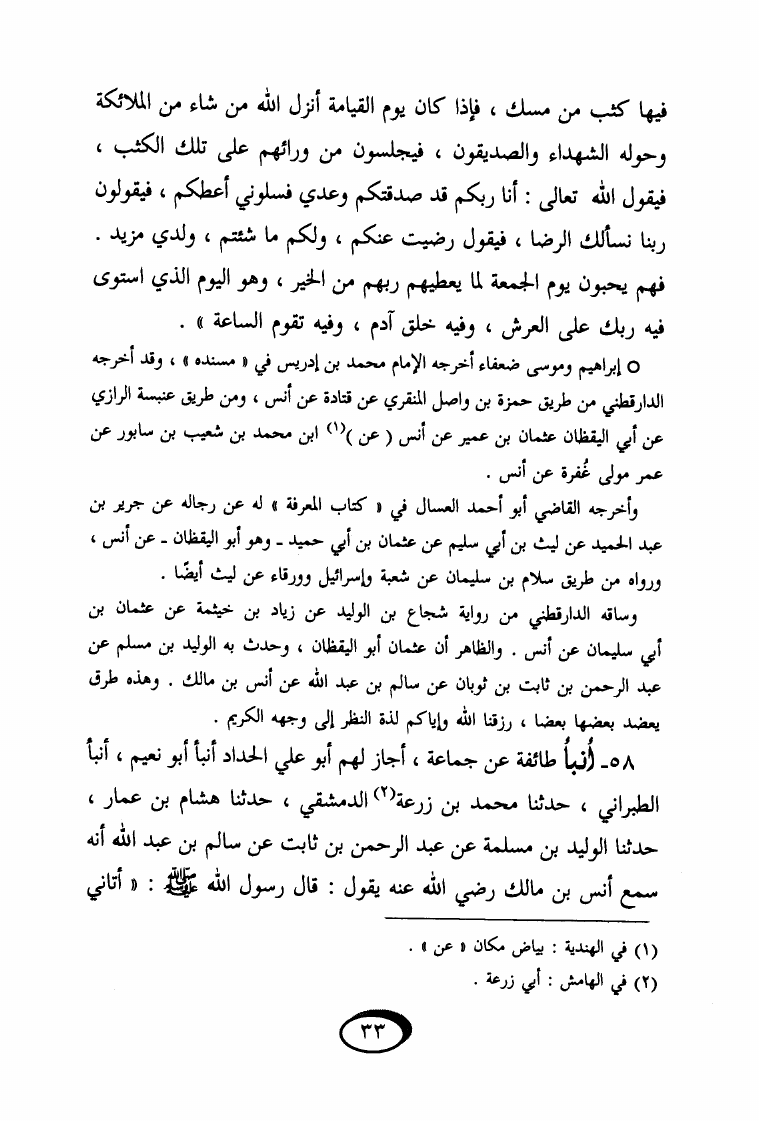 فيها كثب من مسك ، فإذا كان يوم القيامة أنزل الله من شاء من الملائكة
وحوله الشهداء والصديقون ، فيجلسون من ورائهم على تلك الكثب ،
فيقول الله تعالى : أنا ربكم قد صدقتكم وعدي فسلوني أعطكم ، فيقولون
ربنا نسألك الرضا ، فيقول رضيت عنكم ، ولكم ما شئتم ، ولدي مزيد .
فهم يحبون يوم الجمعة لما يعطيهم ربهم من الخير ، وهو اليوم الذي استوى
فيه ربك على العرش ، وفيه خلق آدم ، وفيه تقوم الساعة » .
○ إبراهيم وموسى ضعفاء أخرجه الإمام محمد بن إدريس في « مسنده » ، وقد أخرجه
الدارقطني من طريق حمزة بن واصل المنقري عن قتادة عن أنس ، ومن طريق عنبسة الرازي
عن أبي اليقظان عثمان بن عمير عن أنس ( عن )(١) ابن محمد بن شعيب بن سابور عن
عمر مولى غُفرة عن أنس .
وأخرجه القاضي أبو أحمد العسال في « كتاب المعرفة » له عن رجاله عن جرير بن
عبد الحميد عن ليث بن أبي سليم عن عثمان بن أبي حميد ـ وهو أبو اليقظان ـ عن أنس ،
ورواه من طريق سلام بن سليمان عن شعبة وإسرائيل وورقاء عن ليث أيضًا .
وساقه الدارقطني من رواية شجاع بن الوليد عن زياد بن خيثمة عن عثمان بن
أبي سليمان عن أنس . والظاهر أن عثمان أبو اليقظان ، وحدث به الوليد بن مسلم عن
عبد الرحمن بن ثابت بن ثوبان عن سالم بن عبد الله عن أنس بن مالك . وهذه طرق
يعضد بعضها بعضا ، رزقنا الله وإياكم لذة النظر إلى وجهه الكريم .
٥٨ـ أُنبأُ طائفة عن جماعة ، أجاز لهم أبو علي الحداد أنبأ أبو نعيم ، أنبأ
الطبراني ، حدثنا محمد بن زرعة(٢) الدمشقي ، حدثنا هشام بن عمار ،
حدثنا الوليد بن مسلمة عن عبد الرحمن بن ثابت عن سالم بن عبد الله أنه
سمع أنس بن مالك رضي الله عنه يقول : قال رسول الله ﷺ : « أتاني
(١) في الهندية : بياض مكان « عن » .
(٢) في الهامش : أبي زرعة .
٣٣